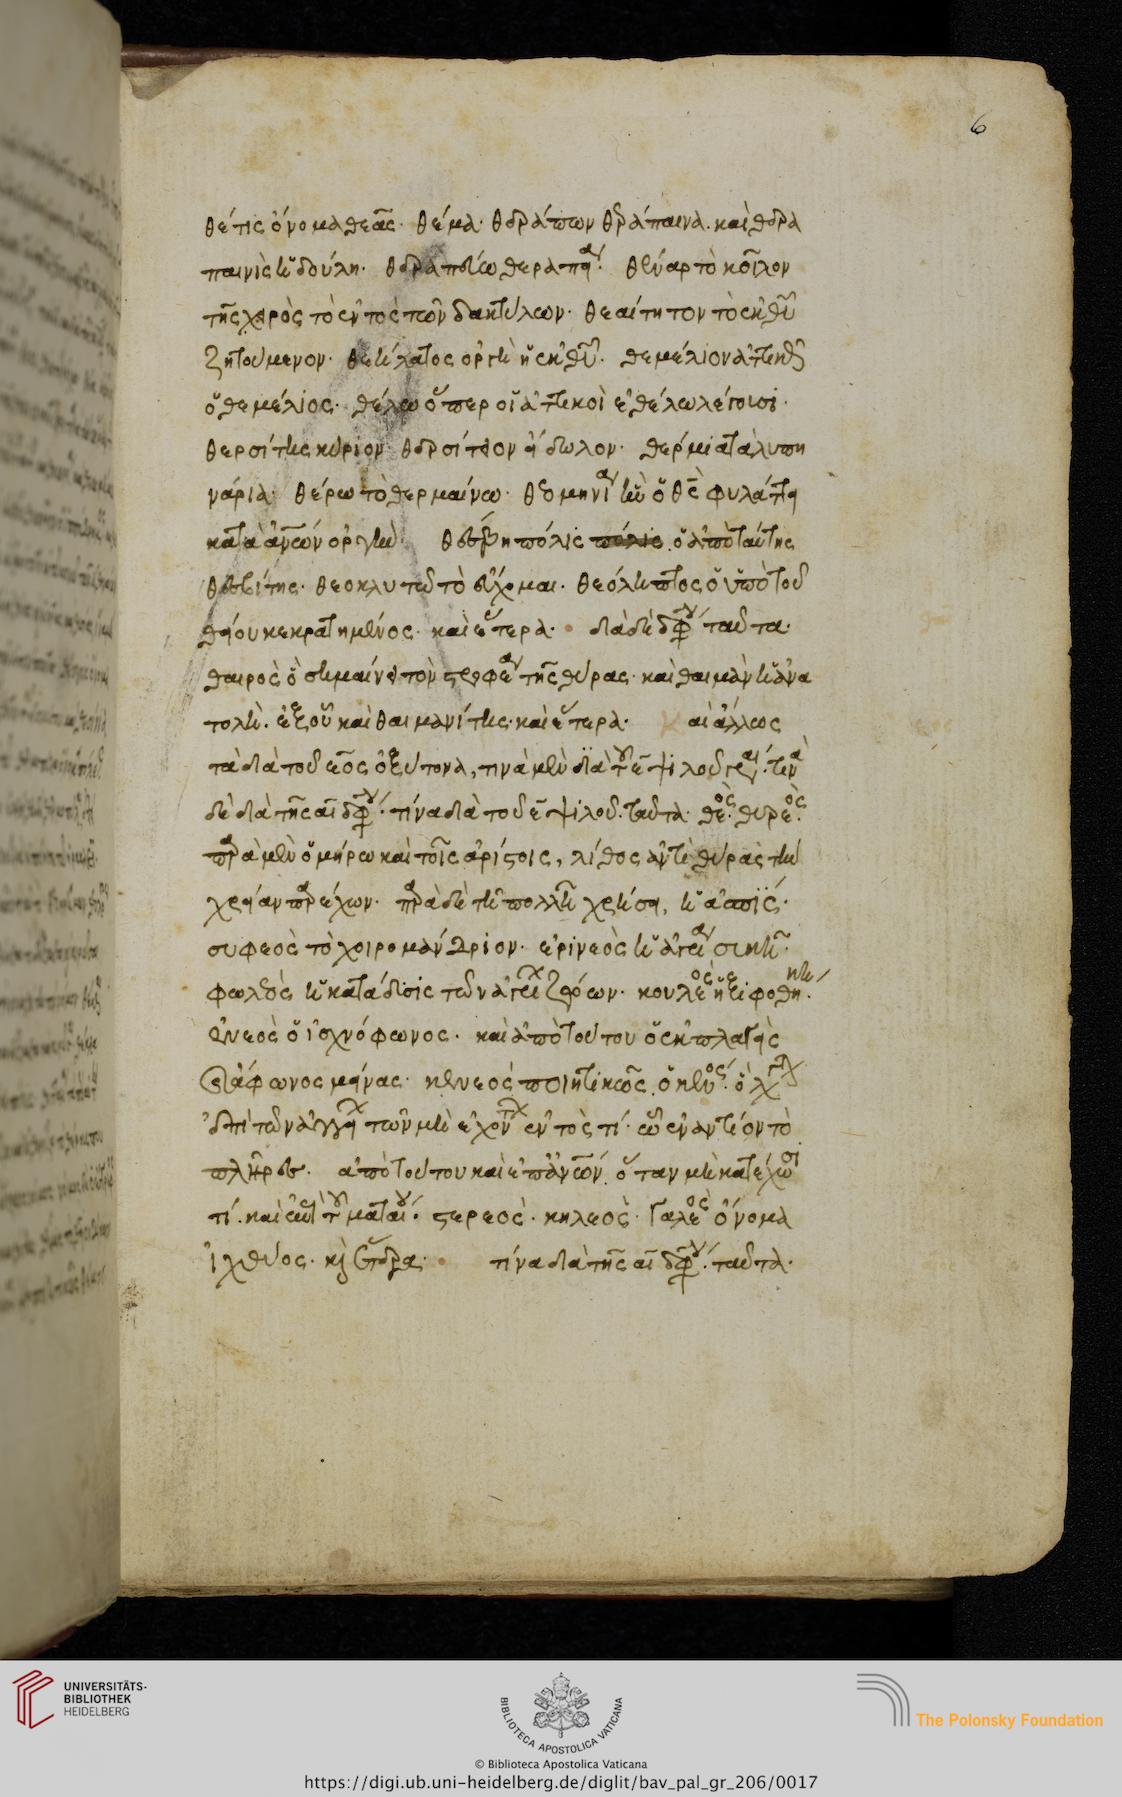 6
θέτις ὄνομα θεᾶς· θέμα· θεράπων θεράπαινα· καὶ θερα
παινὶς ἡ δούλη· θεραπεύω θεραπεία· θέναρ τὸ κοῖλον
τῆς χειρὸς τὸ ἐντὸς τῶν δακτύλων· θεαίτητον τὸ ἐκ θεοῦ
ζητούμενον· θεήλατος ὀργὴ ἡ ἐκ θεοῦ· θεμέλιον
ὁ θεμέλιος· θέλω ὅπερ οἱ ἀττικοὶ ἐθέλω λέγουσι·
θερσίτης κύριον· θερσίτειον εἴδωλον· θέρμια τὰ λυπη
νάρια· θέρω τὸ θερμαίνω· θεομηνία ἣν ὁ θεὸς φυλάττει
κατὰ ἀνθρώπων ὀργήν· πόλις πόλις ὁ ἀπὸ ταύτης
θεοκλυτῶ τὸ εὔχομαι· θεόληπτος ὁ ὑπὸ τοῦ
θείου κεκρατημένος· καὶ ἕτερα· διὰ δὲ διφθόγγου ταῦτα·
θαιρὸς ὃ σημαίνει τὸν στροφέα τῆς θύρας· καὶ θαιμὰν ἡ ἀνα
τολή· ἐξ οὗ καὶ θαιμανίτης· καὶ ἕτερα· αἱ ἄλλως
τὰ διὰ τοῦ εος ὀξύτονα, τινὰ μὲν διὰ τοῦ ε ψιλοῦ γράφεται· τινὰ
δὲ διὰ τῆς αι διφθόγγου· τίνα διὰ τοῦ ε ψιλοῦ· ταῦτα· θεός· θυρεός·
παρὰ μὲν ὁμήρω καὶ τοῖς ἀρίστοις, λίθος ἀντὶ θύρας τὴν
χρείαν παρέχων· παρὰ δὲ τῆ πολλῆ χρήσει, ἡ ἀσπίς·
συφεὸς τὸ χοιρομάνδριον· ἐρινεὸς ἡ ἀγρία συκῆ·
φωλεὸς ἡ κατάδυσις τῶν ἀγρίων ζώων· κουλεὸς ἡ ξιφοθήκη·
ἐνεὸς ὁ ἰσχνόφωνος· καὶ ἀπὸ τούτου ὁ ἐκπλαγεὶς
ἄφωνος μείνας· κενεὸς ποιητικῶς ὁ κενός·
ἐπὶ τῶν ἀγγείων τῶν μὴ ἐχόντων ἐντός τι· ὧ ἐναντίον τὸ
πλῆρες· ἀπὸ τούτου καὶ ἐπὶ ἀνθρώπων ὅταν μὴ κατέχωσί
τι· στερεός· κηλεός· γαλεὸς ὄνομα
ἰχθύος· καὶ ἕτερα· τίνα διὰ τῆς αι διφθόγγου· ταῦτα·
UNIVERSITÄTS-
BIBLIOTHEK
HEIDELBERG
BIBLIOTECA APOSTOLICA VATICANA
The Polonsky Foundation
© Biblioteca Apostolica Vaticana
https://digi.ub.uni-heidelberg.de/diglit/bav_pal_gr_206/0017